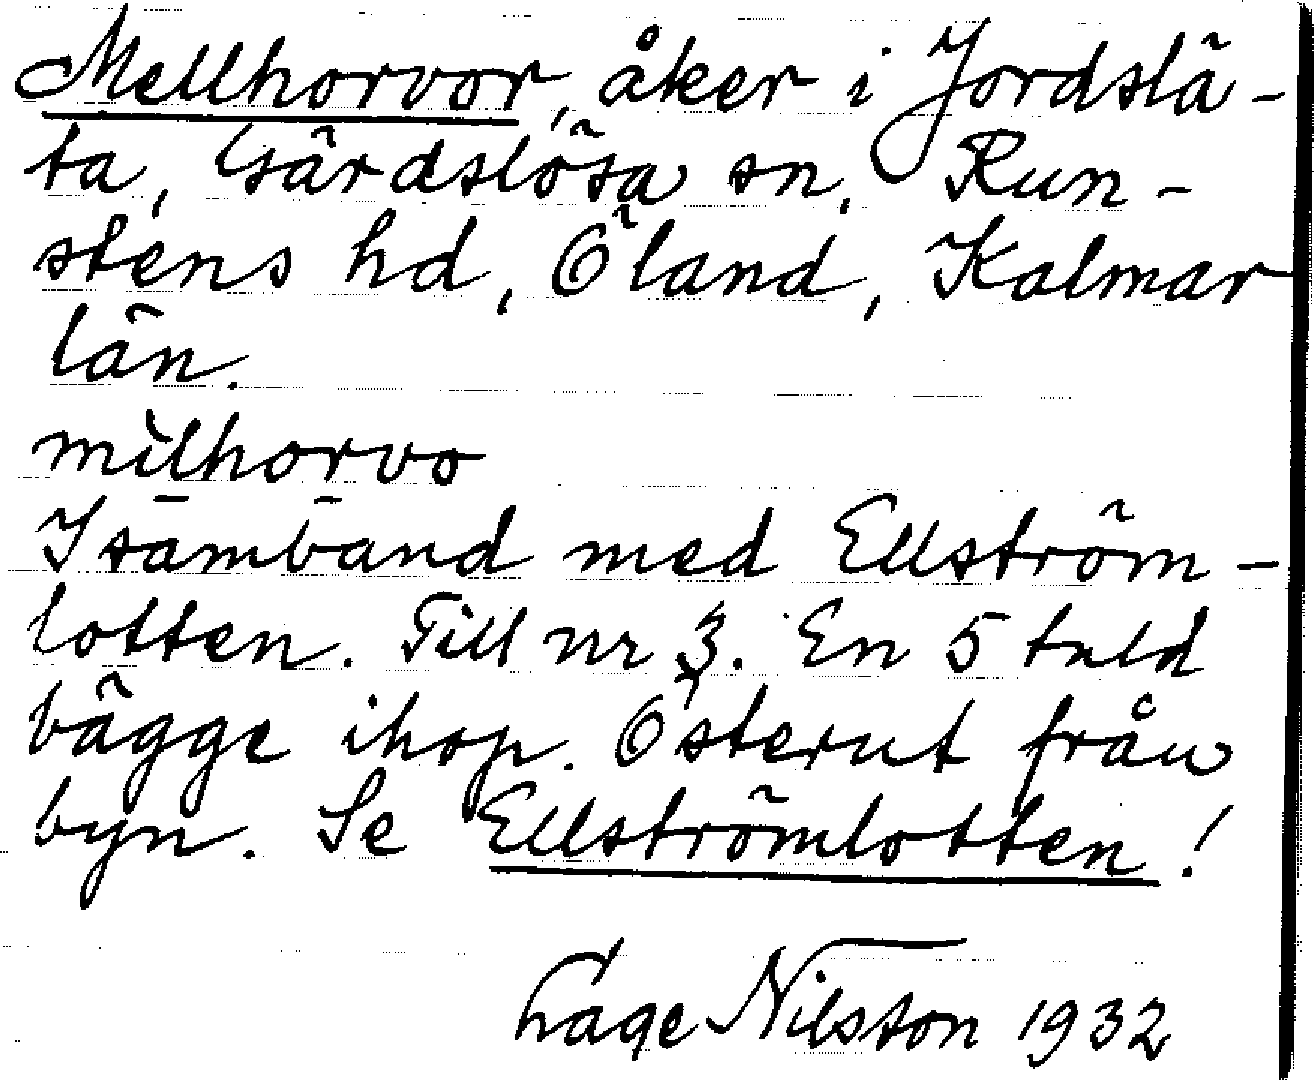 Mellhorvor, åker i Jordslä-
ta, Gärdslösa sn, Run-
stens hd, Öland, Kalmar
län.
milhorvo
I samband med Ellström-
lotten. Till nr 3. En 5 tuld
bägge ihop. Österut från
byn. Se Ellströmlotten!
Lage Nilsson 1932